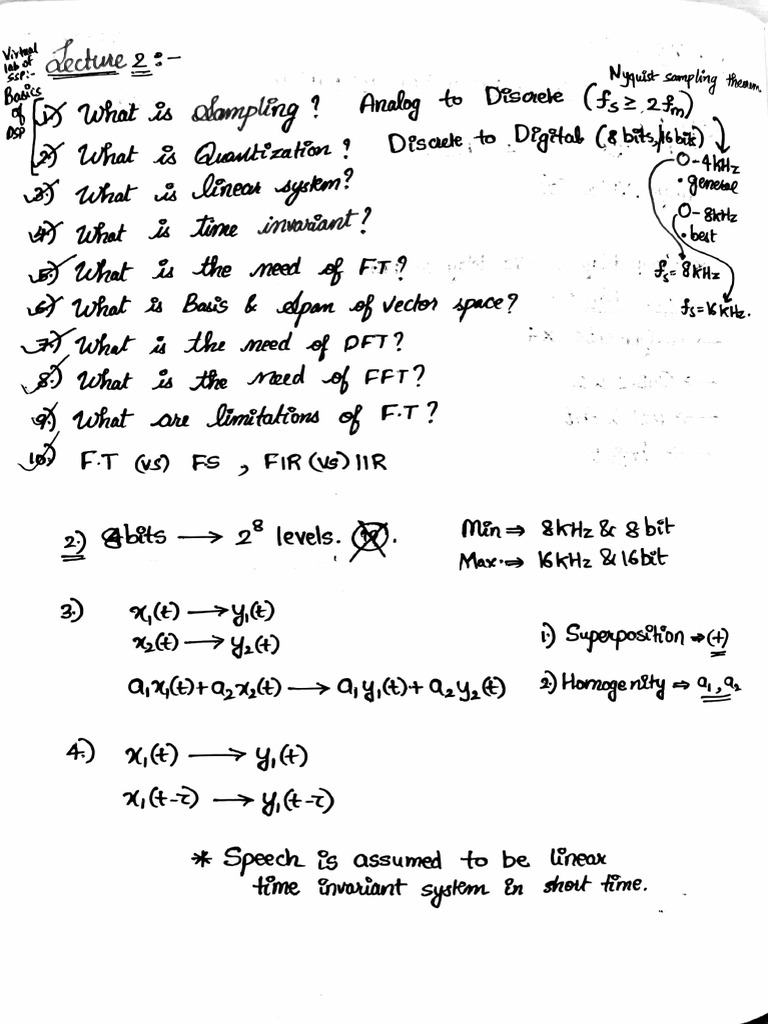 Virtual
lab of
SSP:-
Basics
of
DSP
Lecture 2:-
Nyquist sampling theorem
1.) What is Sampling? Analog to Discrete (fs ≥ 2fm)
2.) What is Quantization? Discrete to Digital (8 bits, 16 bit)
0-4kHz
• general
0-8kHz
• best
fs = 8kHz
fs = 16 kHz.
3.) What is linear system?
4.) What is time invariant?
5.) What is the need of F.T?
6.) What is Basis & Span of vector space?
7.) What is the need of DFT?
8.) What is the need of FFT?
9.) What are limitations of F.T?
10.) F.T (vs) FS , FIR (vs) IIR
2.) 8bits → 2⁸ levels.
Min ⇒ 8kHz & 8bit
Max. ⇒ 16kHz & 16bit
3.) x₁(t) → y₁(t)
x₂(t) → y₂(t)
a₁x₁(t) + a₂x₂(t) → a₁y₁(t) + a₂y₂(t)
1.) Superposition ⇒ (+)
2.) Homogenity ⇒ a₁, a₂
4.) x₁(t) → y₁(t)
x₁(t-τ) → y₁(t-τ)
* Speech is assumed to be linear
time invariant system in short time.